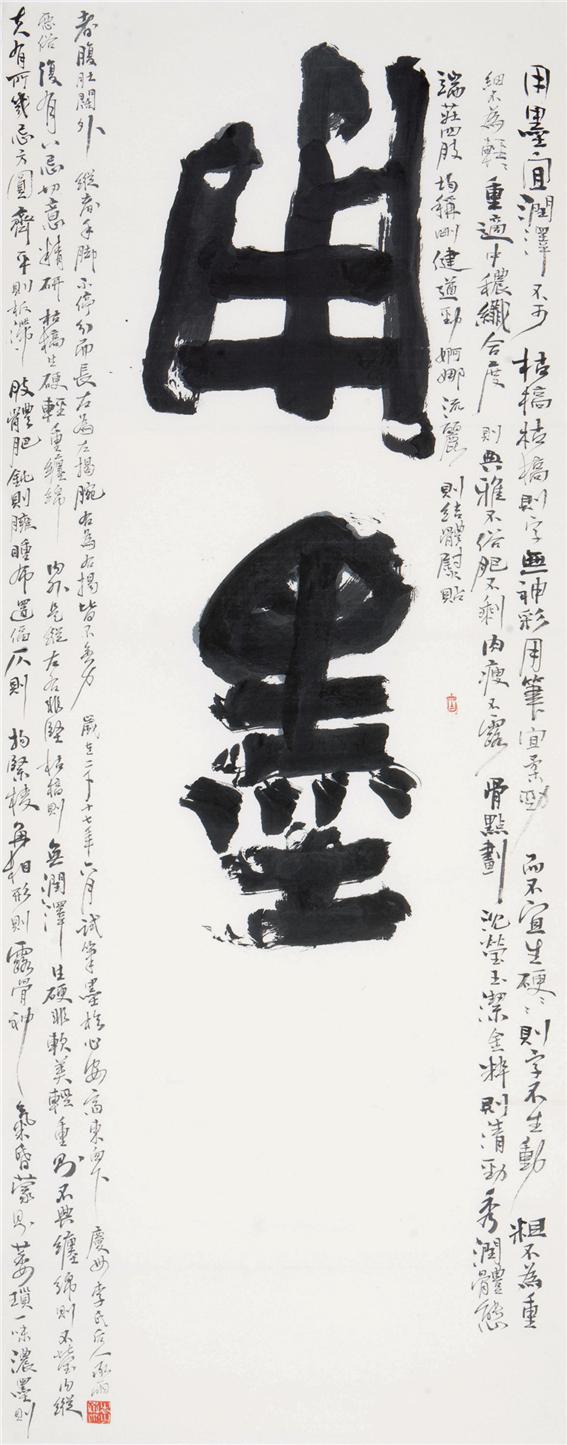 用墨宜潤澤不可枯槁枯槁則字無神彩用筆宜柔勁而不宜生硬〻〻則字不生動粗不為重
細不為輕〻重適中穠纖合度則典雅不俗肥不剩肉瘦不露骨點劃沈瑩玉潔金粹則清勁秀潤體態
端莊四肢均稱剛健遒勁婀娜流麗則結體慰貼
用墨
夫有所幾忌方圓齊平則板滯肢體肥鈍則臃腫布置偏仄則拘緊棱角相形則露骨神氣昏蒙則萎瑣一味濃墨則
惡俗復有八忌切意精研枯槁生硬輕重纏綿內外是縱左右非堅枯槁則無潤澤生硬非軟美輕重則不典纏綿則不瑩內縱
者腹肚闊外縱者手脚不停勻而長左為左揚腕右為右揚皆不無力歲在二千十七年六月試筆墨於心安高東下慶州李氏后人